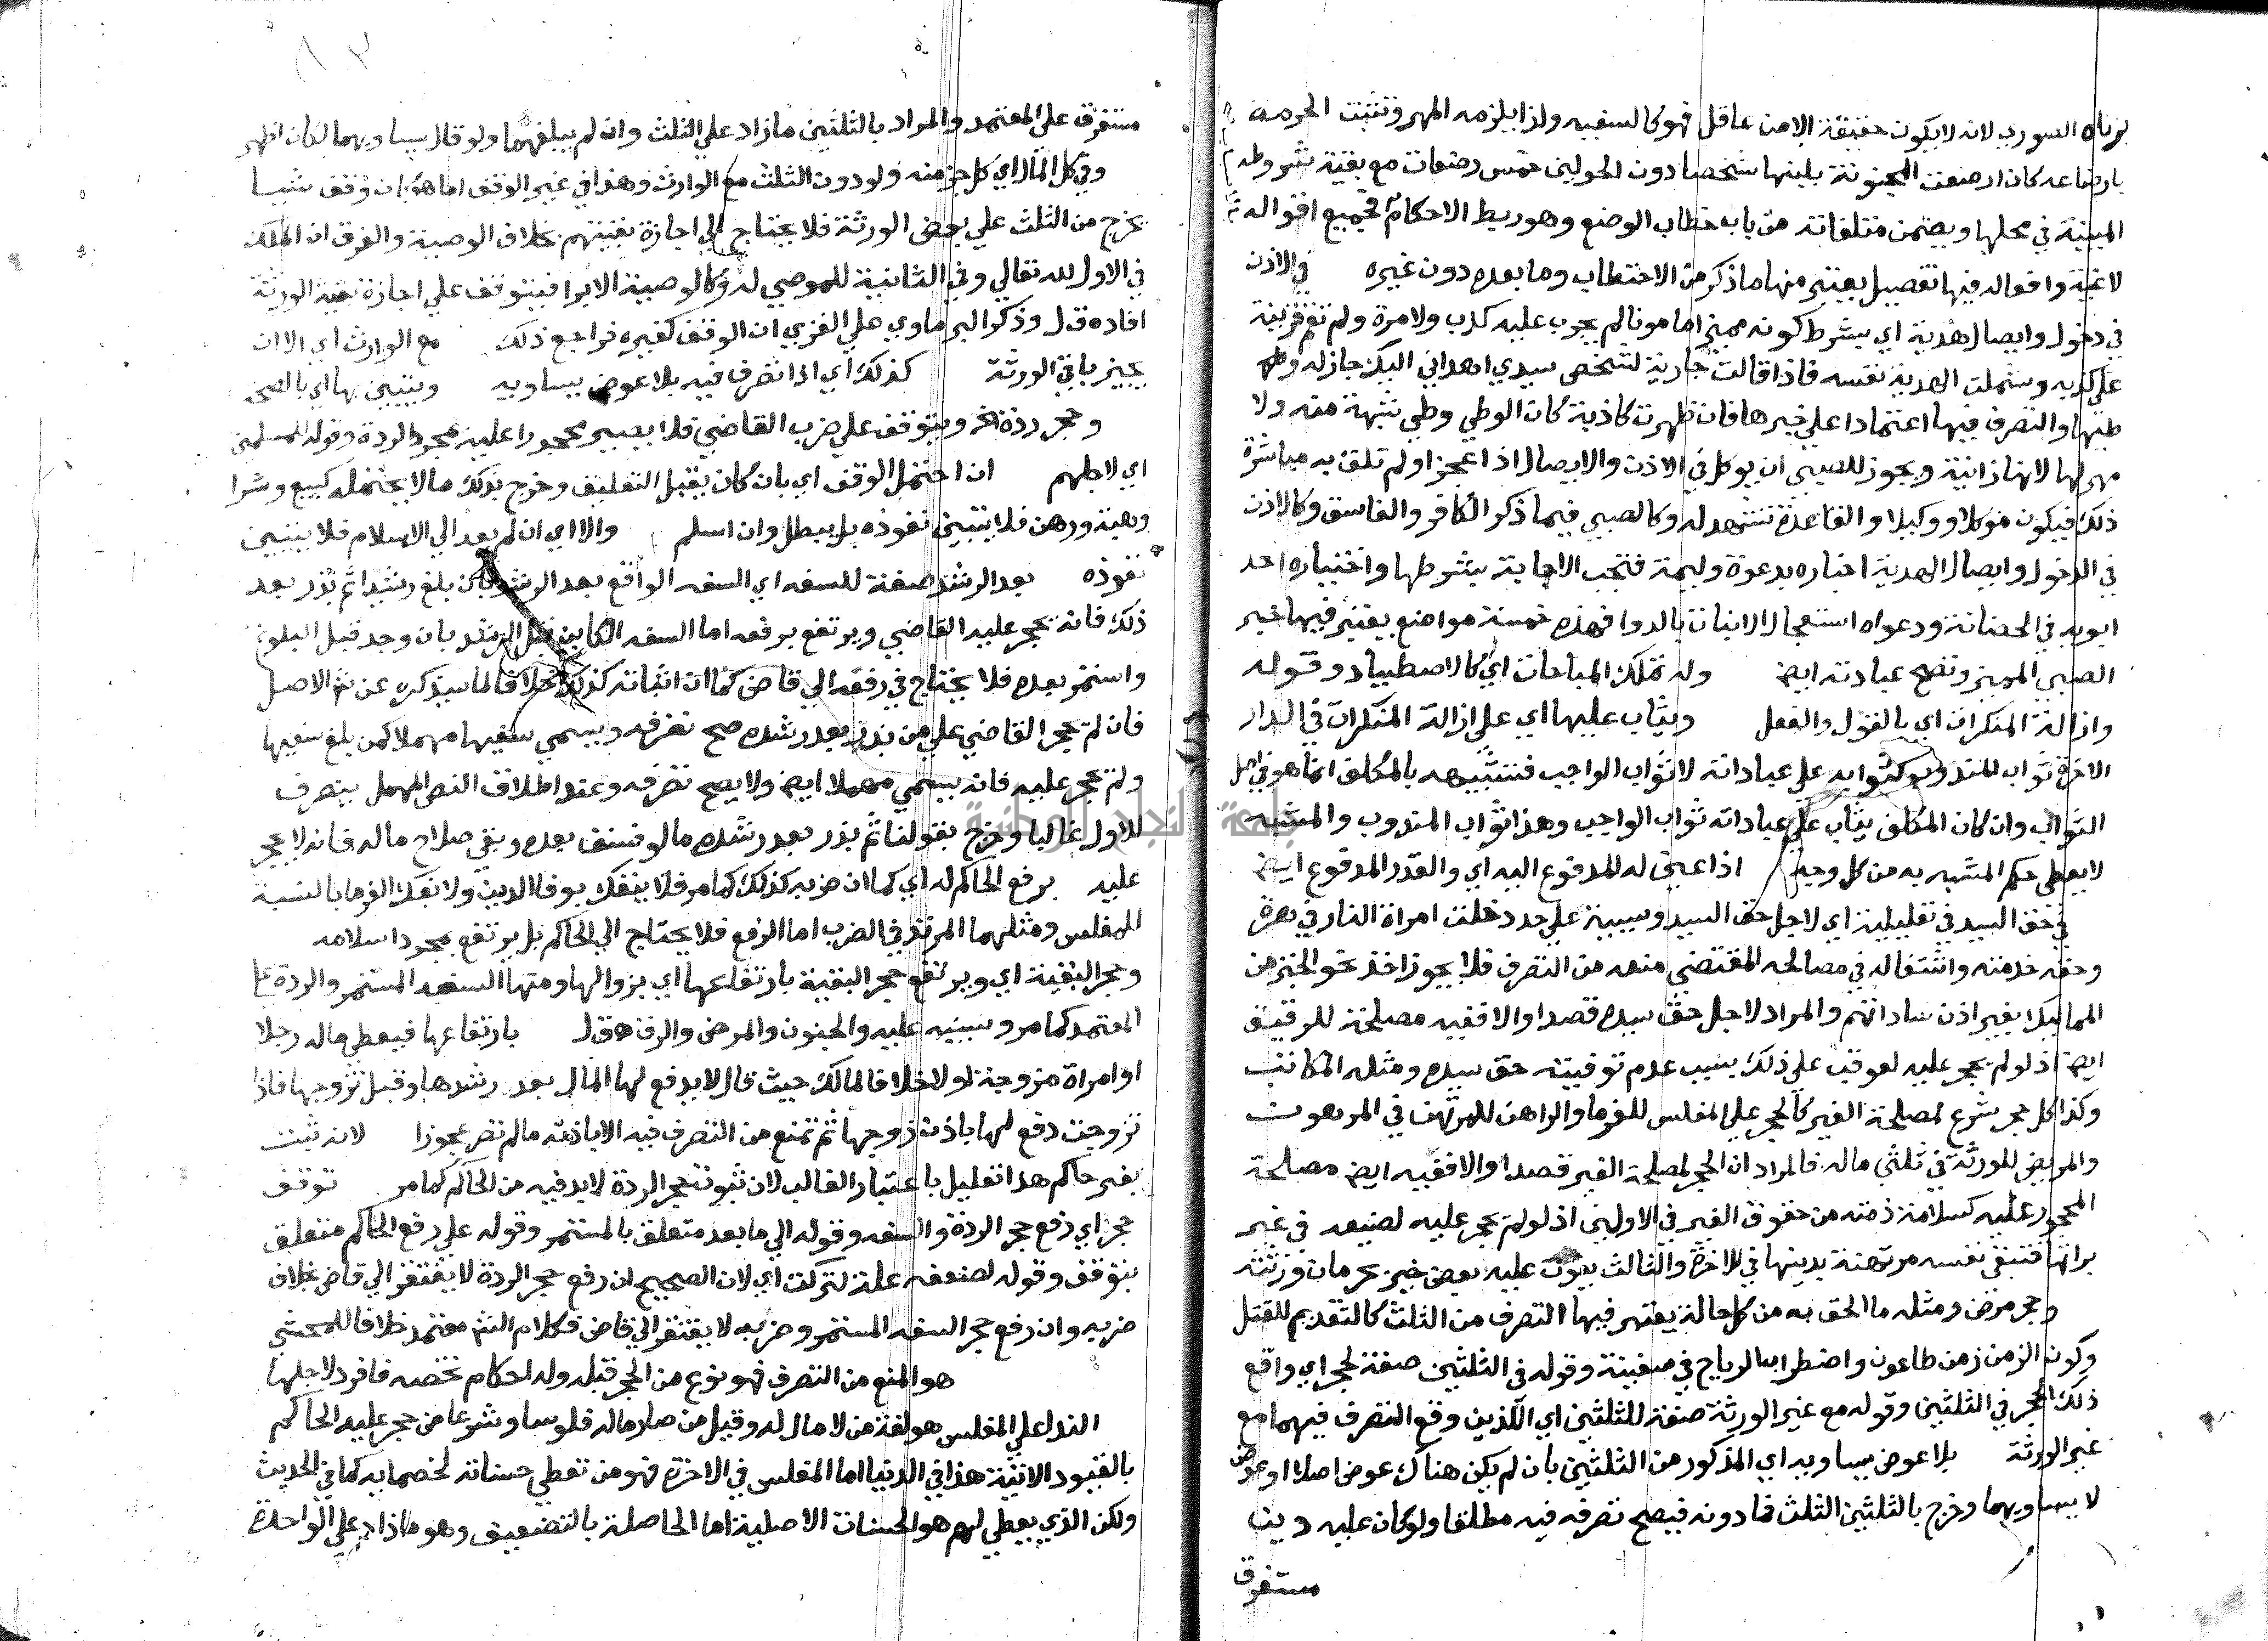 بزناه الصوري لانه لا يكون حقيقة الا من عاقل فهو كالسفيه ولذا يلزمه المهر وتثبت الحرمة
بارضاعه كان ارضعت المجنونة بلبنها شخصا دون الحولين خمس رضعات مع بقية شروطه
المبينة في محلها ويضمن متلفاته من باب خطاب الوضع وهو ربط الاحكام فجميع اقواله
لاغية وافعاله فيها تفصيل يعتبر منها ما ذكر من الاحتطاب وما بعده دون غيره في الاذن
في دخول وايصال هدية اي بشرط كونه مميزا مامونا لم يجرب عليه كذب ولا مرة ولم تقم قرينة
علي كذبه وشملت الهدية نفسه فاذا قالت جارية لشخص سيدي اهداني اليك جاز له
وطئها والتصرف فيها اعتمادا علي خبرها فان ظهرت كاذبة كان الوطي وطي شبهة منه ولا
مهر لها لانها زانية ويجوز للصبي ان يوكل في الاذن والايصال اذا عجز او لم تلق به مباشرة
ذلك فيكون موكلا ووكيلا والقاعدة تشهد له وكالصبي فيما ذكر الكافر والفاسق وكالاذن
في الدخول وايصال الهدية اخباره بدعوة وليمة فتجب الاجابة بشرطها واختياره احد
ابويه في الحضانة ودعواه استعجال الانبات بالدوا فهذه خمسة مواضع يعتبر فيها خبر
الصبي المميز وتصح عبادته ايض وله تملك المباحات اي كالاصطياد وقوله
وازالة المنكرات اي بالقول والفعل ويثاب عليها اي علي ازالة المنكرات في الدار
الاخرة ثواب المندوب كثوابه علي عباداته لا ثواب الواجب فتشبيهه بالمكلف انما هو في اصل
الثواب وان كان المكلف يثاب علي عباداته ثواب الواجب وهذا ثواب المندوب والمشبه
لا يعطي حكم المشبه به من كل وجه اذا عين له المدفوع اليه اي والقدر المدفوع ايض
في حق السيد في تعليلية اي لاجل حق السيد وسببية علي حد دخلت امراة النار في هرة
وحقه خدمته واشتغاله في مصالحه المقتضي منعه من التصرف فلا يجوز اخذ نحو الخبز من
المماليك بغير اذن ساداتهم والمراد لاجل حق سيده قصدا والا ففيه مصلحة للرقيق
ايض اذ لو لم يحجر عليه لعوقب علي ذلك بسبب عدم توفيته حق سيده ومثله المكاتب
وكذا كل حجر شرع لمصلحة الغير كالحجر علي المفلس للغرما والراهن للمرتهن في المرهون
والمريض للورثة في ثلثي ماله فالمراد ان الحجر لمصلحة الغير قصدا والا ففيه ايض مصلحة
المحجور عليه كسلامة ذمته من حقوق الغير في الاولين اذ لو لم يحجر عليه لضيعه في غير
براتها فتبقي نفسه مرتهنة بدينها في الاخرة والثالث يفوت عليه بعض خير بحرمان ورثته
وحجر مرض ومثله ما الحق به من كل حالة يعتبر فيها التصرف من الثلث كالتقديم للقتل
وكون الزمن زمن طاعون واضطراب الرياح في سفينة وقوله في الثلثين صفة لحجر اي واقع
ذلك الحجر في الثلثين وقوله مع غير الورثة صفة للثلثين اي اللذين وقع التصرف فيهما مع
غير الورثة بلا عوض يساويه اي المذكور من الثلثين بان لم يكن هناك عوض اصلا او عوض
لا يساويهما وخرج بالثلثين الثلث فما دونه فيصح تصرفه فيه مطلقا ولو كان عليه دين
مستغرق
مستغرق علي المعتمد والمراد بالثلثين ما زاد علي الثلث وان لم يبلغهما ولو قال يساويهما لكان اظهر
وفي كل المال اي كل جزء منه ولو دون الثلث مع الوارث وهذا في غير الوقف اما هو كان وقف شيا
يخرج من الثلث علي بعض الورثة فلا يحتاج الي اجازة بقيتهم بخلاف الوصية والفرق ان الملك
في الاول لله تعالي وفي الثانية للموصي له وكالوصية الابرا فيتوقف علي اجازة بقية الورثة
افاده ق ل وذكر البرماوي علي الغزي ان الوقف كغيره فراجع ذلك مع الوارث اي الا ان
يجيز باقي الورثة كذلك اي اذا تصرف فيه بلا عوض يساويه ويتبين بها اي بالصحة
وحجر ردة ويتوقف علي ضرب القاضي فلا يصير محجورا عليه بمجرد الردة وقوله للمسلمين
اي لاجلهم ان احتمل الوقف اي بان كان يقبل التعليق وخرج بذلك ما لا يحتمله كبيع وشرا
وهبة ورهن فلا يتبين نفوذه بل يبطل وان اسلم والا اي ان لم يعد الي الاسلام فلا يتبين
نفوذه بعد الرشد صفة للسفه اي السفه الواقع بعد الرشد بان بلغ رشيدا ثم بذر بعد
ذلك فانه يحجر عليه القاضي ويرتفع برفعه اما السفه الكاين قبل الرشد بان وجد قبل البلوغ
واستمر بعده فلا يحتاج في رفعه الي قاض كما ان اثباته كذلك خلافا لما سيذكره عن الاصل
فان لم يحجر القاضي علي من بذر بعد رشده صح تصرفه ويسمي سفيها مهملا كمن بلغ سفيها
ولم يحجر عليه فانه يسمي مهملا ايض ولا يصح تصرفه وعند اطلاق النص المهمل ينصرف
للاول غالبا وخرج بقولنا ثم بذر بعد رشده ما لو فسق بعده وبقي صلاح ماله فانه لا يحجر
عليه برفع الحاكم له اي كما ان ضربه كذلك كما مر فلا ينفك بوفا الدين ولا بفك الغرما بالنسبة
للمفلس ومثلهما المرتد في الضرب اما الرفع فلا يحتاج الي الحاكم بل يرتفع بمجرد اسلامه
وحجر البقية اي ويرتفع حجر البقية بارتفاعها اي بزوالها ومنها السفه المستمر والردة علي
المعتمد كما مر وسينبه عليه والجنون والمرض والرق ق ل بارتفاعها فيعطي ماله رجلا
او امراة مزوجة او لا خلافا لمالك حيث قال لا يدفع لها المال بعد رشدها وقبل تزوجها فاذا
تزوجت دفع لها باذن زوجها ثم تمنع من التصرف فيه الا باذنه ما لم تصر عجوزا لانه ثبت
بغير حاكم هذا تعليل باعتبار الغالب لان ثبوت حجر الردة لا بد فيه من الحاكم كما مر توقف
حجر اي رفع حجر الردة والسفه وقوله الي ما بعد متعلق بالمستمر وقوله علي رفع الحاكم متعلق
بتوقف وقوله لضعفه علة لتركت اي لان الصحيح ان رفع حجر الردة لا يفتقر الي قاض بخلاف
ضربه وان رفع حجر السفه المستمر وضربه لا يفتقر الي قاض فكلام الش معتمد خلافا للمحشي
هو المنع من التصرف فهو نوع من الحجر قبله وله احكام تخصه فافرد لاجلها
الندا علي المفلس هو لغة من لا مال له وقيل من صار ماله فلوسا وشرعا من حجر عليه الحاكم
بالقيود الاتية هذا في الدنيا اما المفلس في الاخرة فهو من تعطي حسناته لخصمايه كما في الحديث
ولكن الذي يعطي لهم هو الحسنات الاصلية اما الحاصلة بالتضعيف وهو ما زاد علي الواحدة